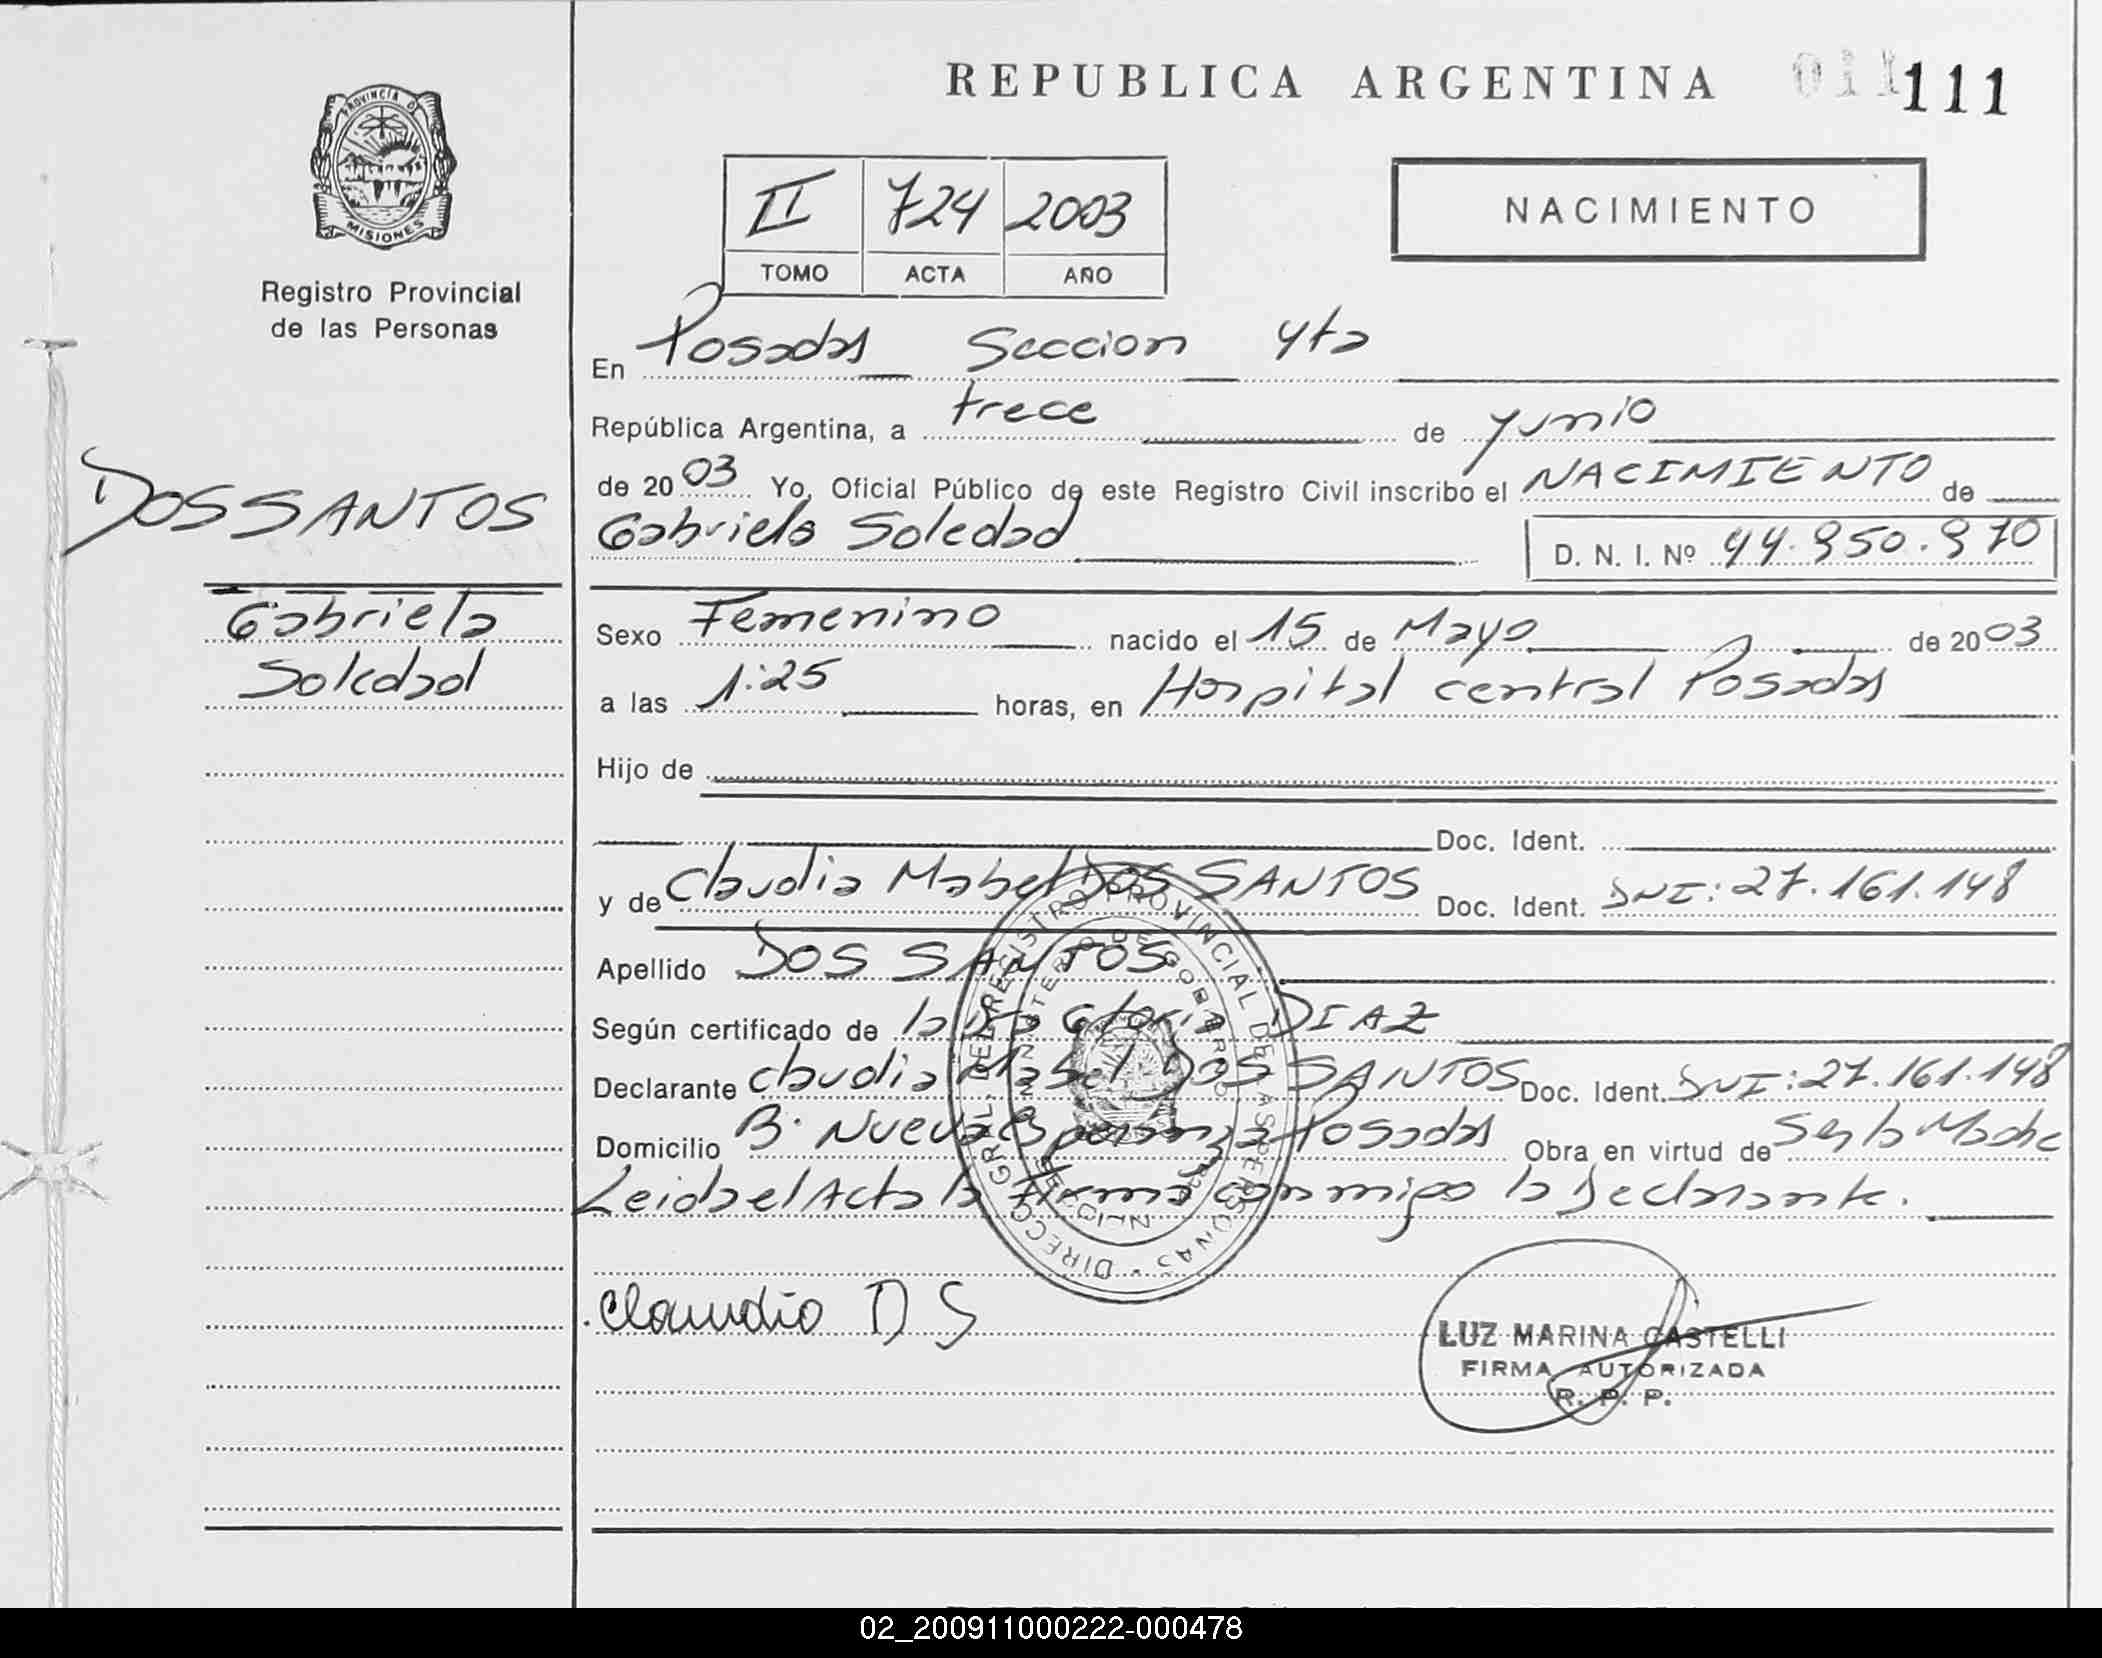 REPUBLICA ARGENTINA 111
PROVINCIA D MISIONES
Registro Provincial
de las Personas
II 724 2003
TOMO ACTA AÑO
NACIMIENTO
En Posadas Seccion 4ta
República Argentina, a trece de junio
de 2003 Yo, Oficial Público de este Registro Civil inscribo el NACIMIENTO de
Gabriela Soledad D. N. I. Nº 44.950.970
DOS SANTOS
Gabriela
Soledad
Sexo Femenino nacido el 15 de Mayo de 2003
a las 1:25 horas, en Hospital central Posadas
Hijo de
Doc. Ident.
y de Claudia Mabel DOS SANTOS Doc. Ident. DNI: 27.161.148
Apellido DOS SANTOS
Según certificado de la Dra Gloria DIAZ
Declarante Claudia Mabel DOS SANTOS Doc. Ident. DNI: 27.161.148
Domicilio B. Nueva Esperanza Posadas Obra en virtud de Ser la Madre
Leida el Acta la Firma conmigo la Declarante.
DIRECC. GRAL. DEL REGISTRO PROVINCIAL DE LAS PERSONAS
MINISTERIO DE GOBIERNO
Claudia D S
LUZ MARINA CASTELLI
FIRMA AUTORIZADA
R. P. P.
02_200911000222-000478